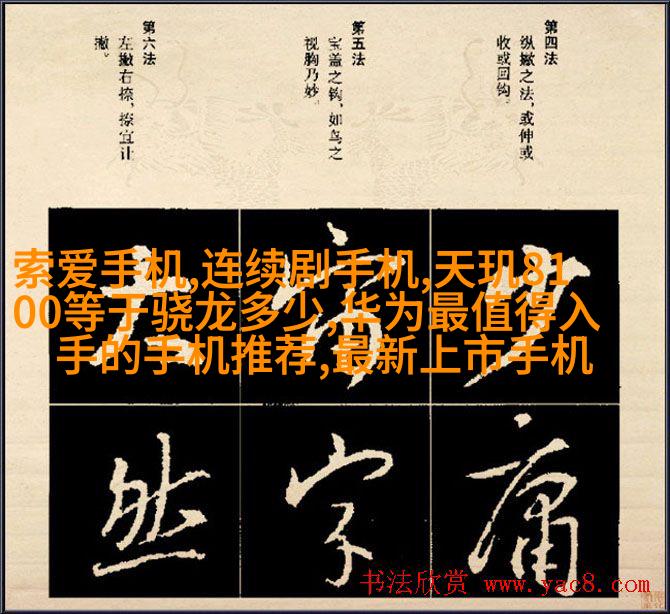 第四法
纵撇之法，或伸或
收或回钩。
第五法
宝盖之钩，如鸟之
视胸乃妙。
第六法
左撇右捺，捺宜让
撇。
索爱手机,连续剧手机,天玑81
00等于骁龙多少,华为最值得入
手的手机推荐,最新上市手机
少
大
庸
字
然
书法欣赏 www.yac8.com